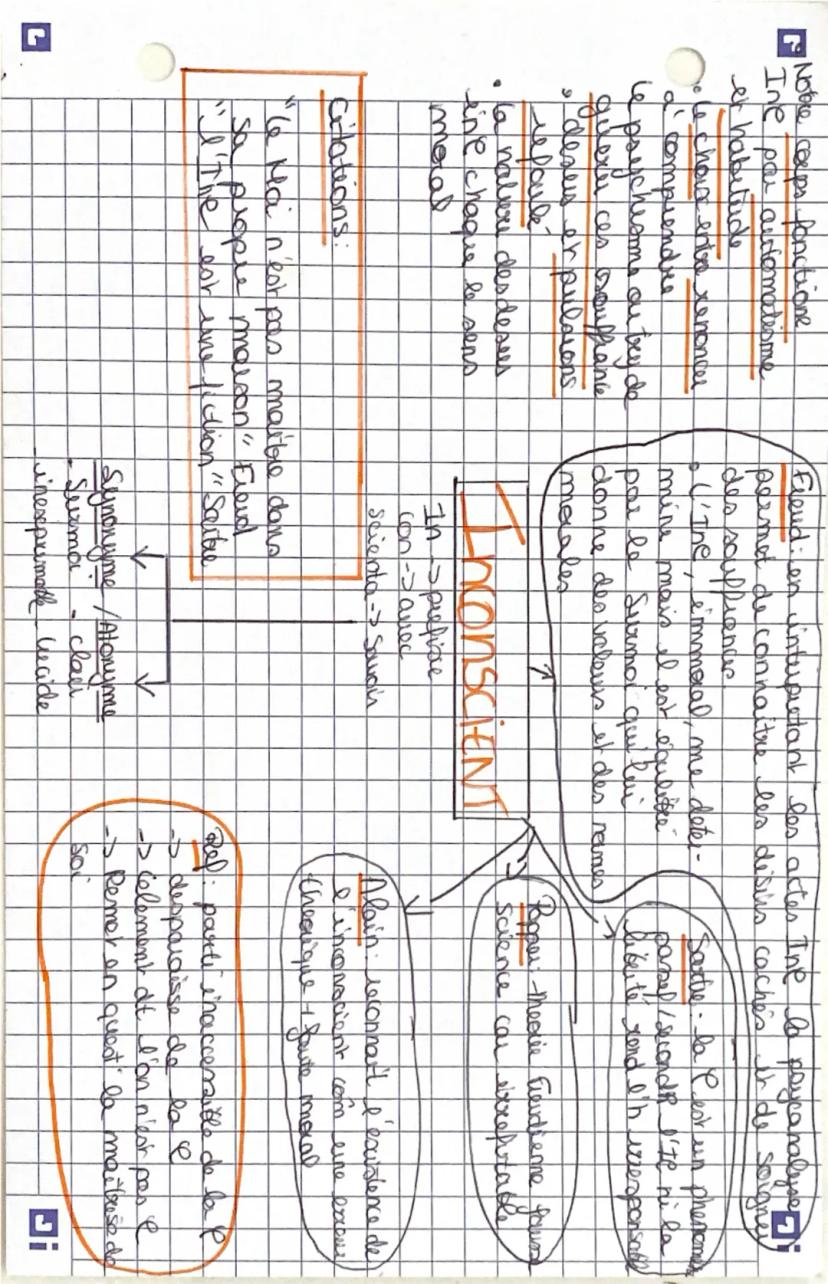 Notre corps fonctione
Inc par automatisme
et habitude
• le choix entre renoncer
à comprendre
le psychisme ou try de
guérir ces souffrance
• desirs et pulsions
refoulé
• la nature des desirs
inc choque le sens
moral
Citations:
"Le Moi n'est pas maître dans
sa propre maison" Freud
"l'Inc est une fiction" Sartre
Freud: en interpretant les actes Inc la psycanalyse
permet de connaître les désirs cachés et de soigner
des souffrances
• L'Inc, immoral, me déter-
mine mais il est équilibré
par le Surmoi qui lui
donne des valeurs et des normes
morales
InconscIENT
In -> prefixe
con -> avec
scienta -> savoir
Synonyme / Atonyme
- Surmoi - clair
inexprimable lucide
Sartre: la C est un phenomene
passif/second l'Inc nie la
liberté rend l'h irresponsable
Popper: theorie freudienne fausse
science car irrefutable
Alain: reconnaît l'existence de
l'inconscient com une erreur
théorique + faute moral
Def: parti inaccessible de la C
-> desparaisse de la C
-> élement dt l'on n'est pas C
-> Remet en quest° la maîtrise de
soi